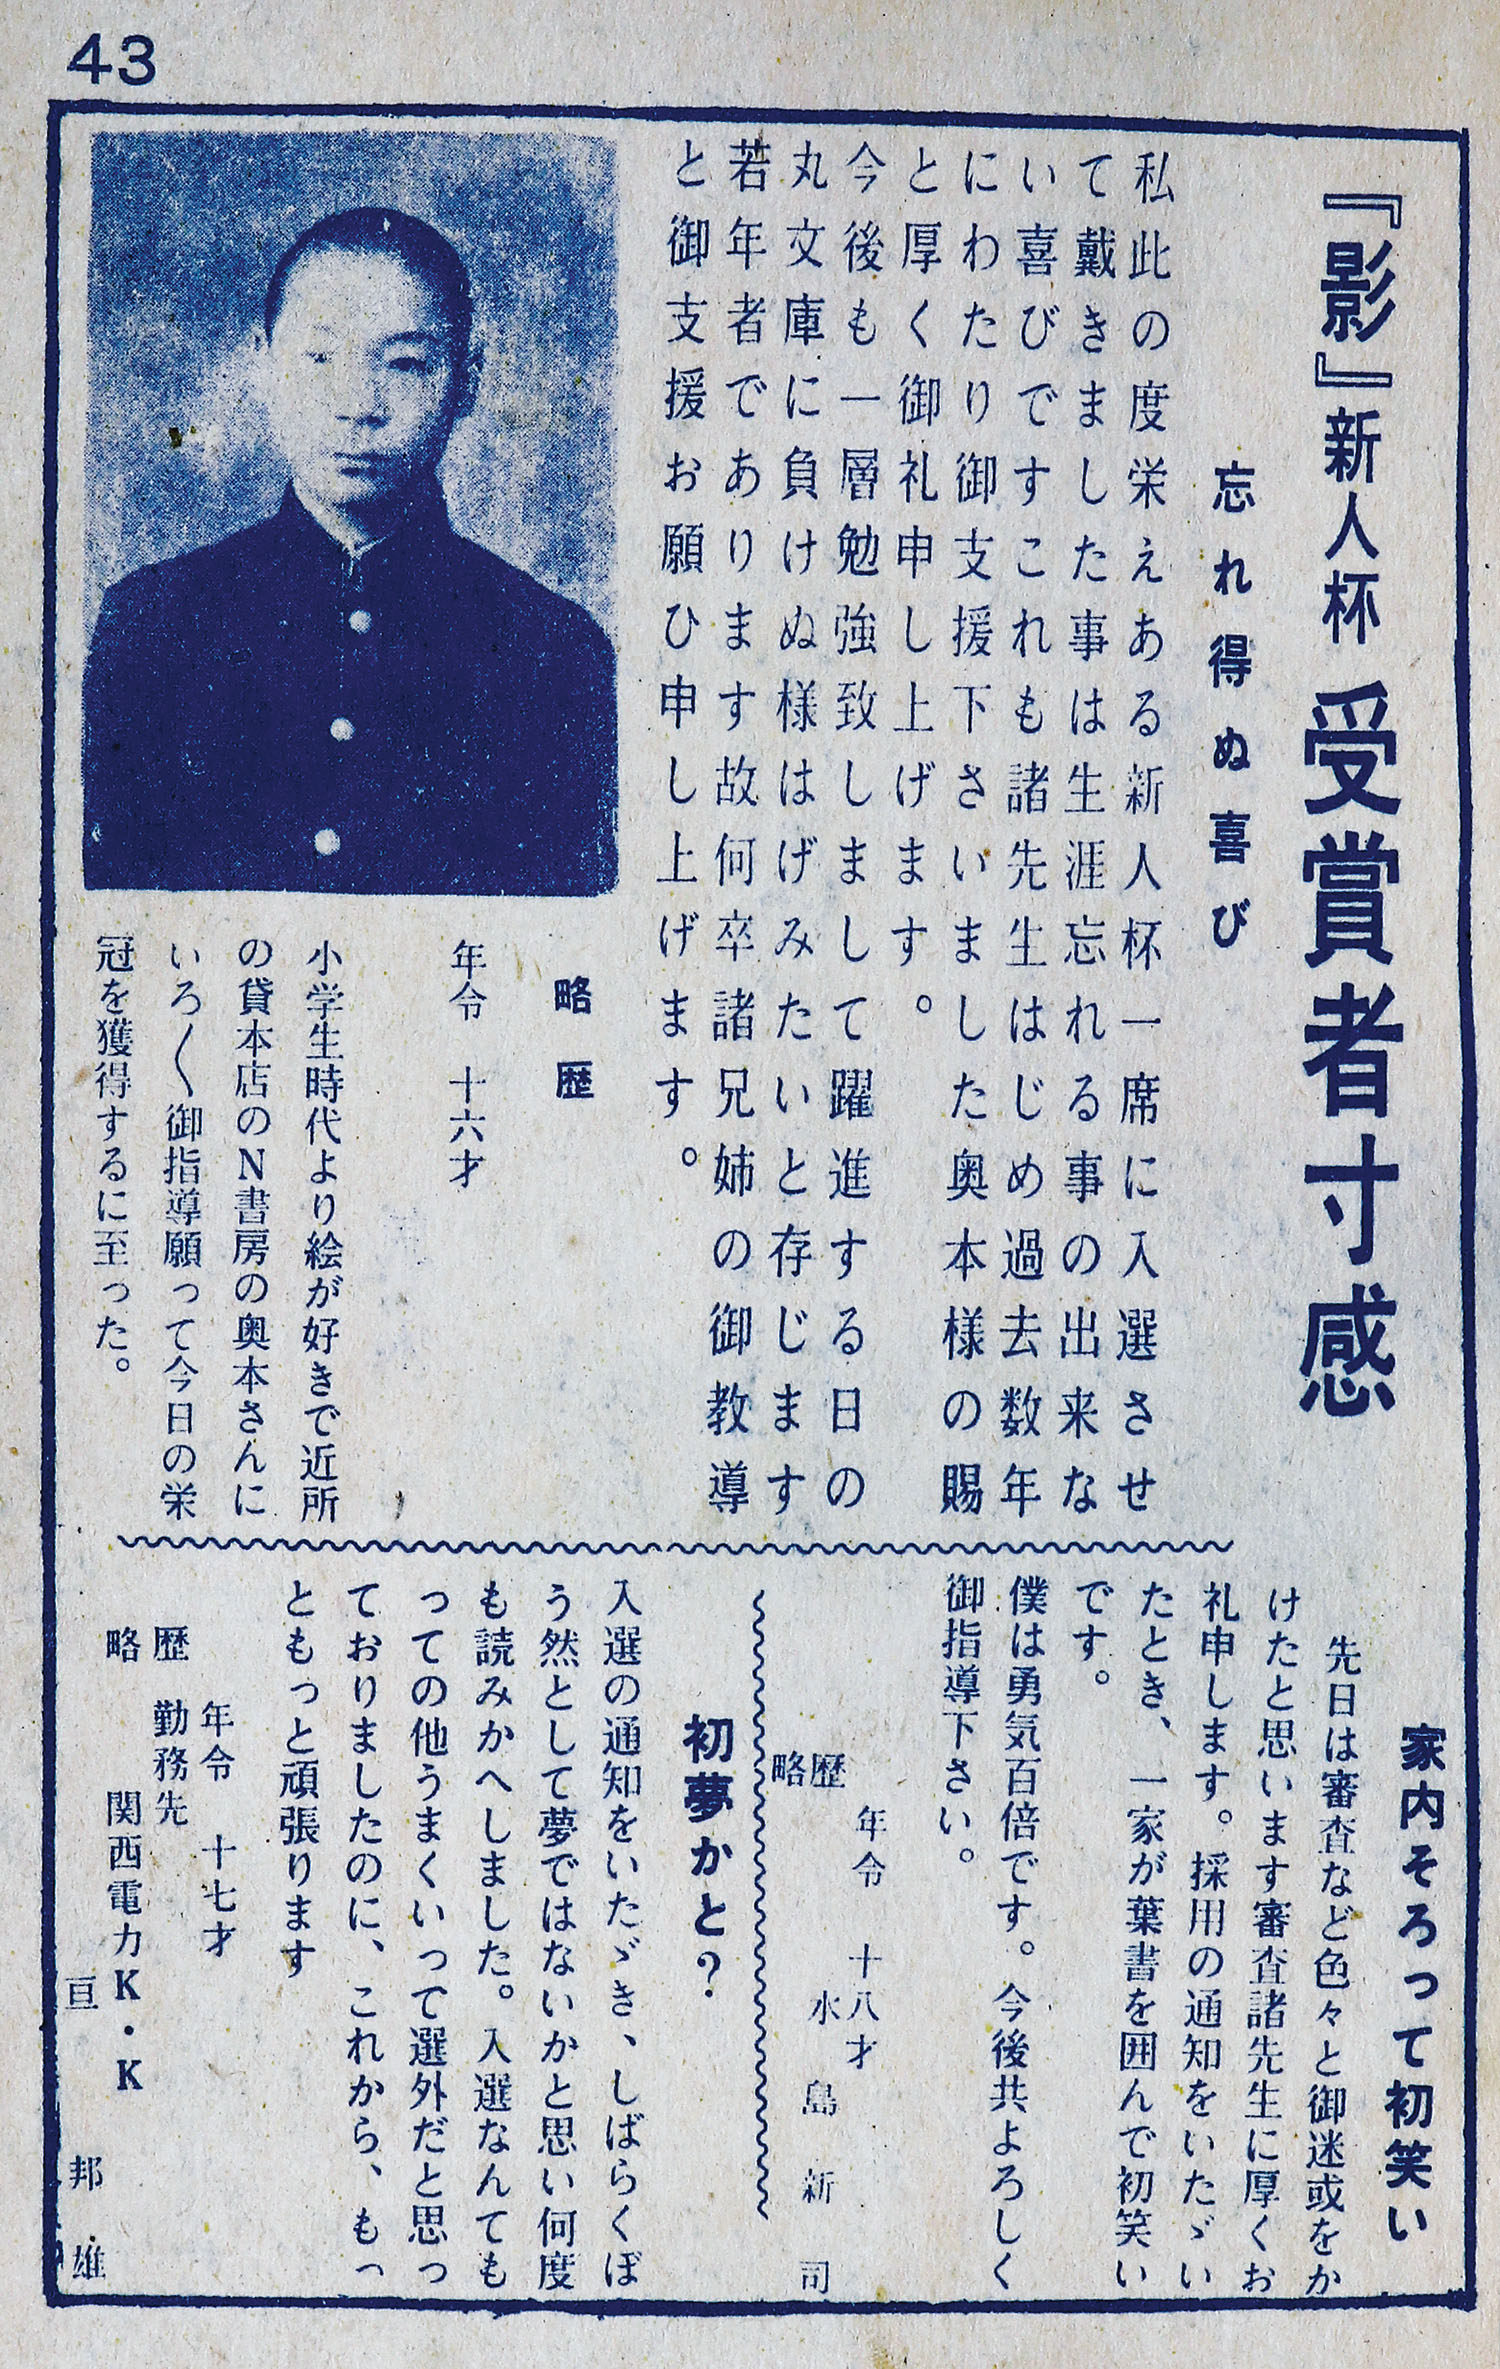 43
『影』新人杯 受賞者寸感
忘れ得ぬ喜び
私此の度栄えある新人杯一席に入選させ
て戴きました事は生涯忘れる事の出来な
い喜びですこれも諸先生はじめ過去数年
にわたり御支援下さいました奥本様の賜
と厚く御礼申し上げます。
今後も一層勉強致しまして躍進する日の
丸文庫に負けぬ様はげみたいと存じます
若年者であります故何卒諸兄姉の御教導
と御支援お願ひ申し上げます。
略歴
年令 十六才
小学生時代より絵が好きで近所
の貸本店のN書房の奥本さんに
いろ〱御指導願って今日の栄
冠を獲得するに至った。
家内そろって初笑い
先日は審査など色々と御迷或をか
けたと思います審査諸先生に厚くお
礼申します。採用の通知をいたゞい
たとき、一家が葉書を囲んで初笑い
です。
僕は勇気百倍です。今後共よろしく
御指導下さい。
年令 十八才
略歴
水島新司
初夢かと?
入選の通知をいたゞき、しばらくぼ
う然として夢ではないかと思い何度
も読みかへしました。入選なんても
っての他うまくいって選外だと思っ
ておりましたのに、これから、もっ
ともっと頑張ります
年令 十七才
略歴 勤務先
関西電力K・K
亘 邦雄